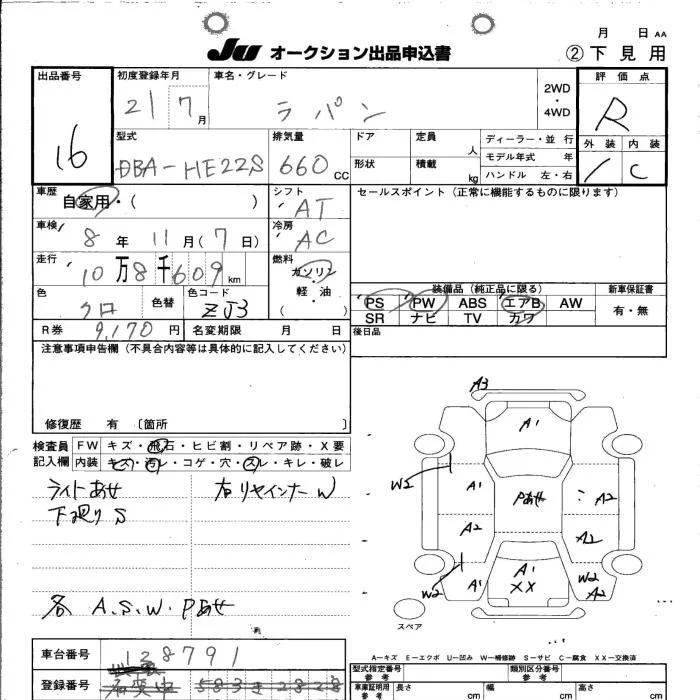 月 日 AA
JU オークション出品申込書 ②下見用
出品番号 初度登録年月 車名・グレード 2WD・4WD 評価点
16 21 7月 ラパン R
型式 排気量 ドア 定員 人 ディーラー・並行 外装 内装
DBA-HE22S 660 CC 形状 積載 kg モデル年式 年 / C
ハンドル 左・右
車歴 自家用・( ) シフト AT セールスポイント(正常に機能するものに限ります)
車検 8年 11月(7日) 冷房 AC
走行 10万8千609km 燃料 ガソリン
軽・油
( )
色 クロ 色替 色コード ZJ3
装備品(純正品に限る) 新車保証書
PS PW ABS エアB AW 有・無
SR ナビ TV カワ
R券 9,170円 名変期限 月 日 後日品
注意事項申告欄(不具合内容等は具体的に記入してください)
修復歴 有〔箇所 〕
検査員 FW キズ・飛石・ヒビ割・リペア跡・X要
記入欄 内装 キズ・汚レ・コゲ・穴・スレ・キレ・破レ
ライトあせ 右リヤインナーW
下廻りS
各 A.S.W.Pあせ
A3
A1
W2 A1 Pあせ A2
A2 A2
W2 A1 A1 XX W2 A2
スペア
A-キズ E-エクボ U-凹み W-補修跡 S-サビ C-腐食 XX-交換済
車台番号 128791
登録番号 583 き 2828
型式指定番号 参考 類別区分番号 参考
車庫証明用 参考 長さ cm 幅 cm 高さ cm